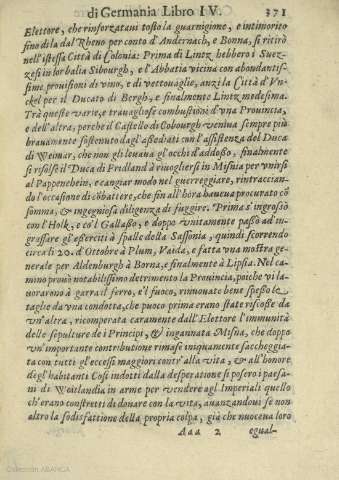 di Germania Libro IV. 371
Elettore, che rinforzatani tosto la guarnigione, e intimorito
fino di là dal Rheno per conto d'Andernach, e Bonna, si ritirò
nell'istessa Città di Colonia: Prima di Lintz hebbero i Suez-
zesi in lor balia Sibourgh, e l'Abbatia vicina con abondantis-
sime provisioni di vino, e di vettovaglie, anzi la Città d'Vn-
ckel per il Ducato di Bergh, e finalmente Lintz medesima.
Trà queste varie, e travagliose combustioni d'vna Provincia,
e dell'altra, perche il Castello di Cobourgh veniua sempre più
brauamente sostenuto dagl'assediati con l'assistenza del Duca
di Weimar, che non gli leuaua gl'occhi d'addosso, finalmente
si risolse il Duca di Fridland à rivogliersi in Misnia per vnirsi
al Pappenheim, e cangiar modo nel guerreggiare, rintraccian-
do l'occasione di cōbattere, che fin all'hora haueua procurato cō
somma, & ingegnosa diligenza di fuggire. Prima s'ingrossò
con l'Holk, e cò'l Gallasso, e doppo vnitamente passò ad in-
grossare gl'eserciti à spalle della Sassonia, quindi scorrendo
circa li 20. d'Ottobre à Plum, Vaida, e fatta vna mostra ge-
nerale per Aldenburgh à Borna, e finalmente à Lipsia. Nel ca-
mino prouò notabilissimo detrimento la Prouincia, poiche vi la-
uorarono à garra il ferro, e'l fuoco, rinnouate bene spesso le
taglie da vna condotta, che puoco prima erano state riscosse da
vn'altra, ricomperata caramente dall'Elettore l'immunità
delle sipolture de i Principi, & ingannata Misnia, che doppo
vn'importante contributione rimase iniquamente saccheggia-
ta con tutti gl'eccessi maggiori contr'alla vita, & all'honore
degl'habitanti Così indotti dalla desperatione si posero i paesa-
ni di Woitlandia in arme per vendere agl'Imperiali quello
ch'erano constretti di donare con la vita, auanzandosi se non
altro la sodisfattione della propria colpa, già che nuoceua loro
Aaa 2 egual-
Colección ABANCA